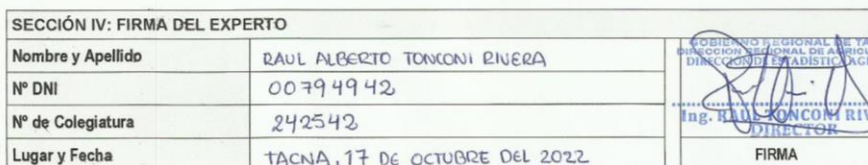 SECCIÓN IV: FIRMA DEL EXPERTO
Nombre y Apellido RAUL ALBERTO TONCONI RIVERA
Nº DNI 00794942
Nº de Colegiatura 242542
Lugar y Fecha TACNA, 17 DE OCTUBRE DEL 2022
GOBIERNO REGIONAL DE TA
DIRECCION REGIONAL DE AGRIC
DIRECCIÓN DE ESTADISTICA AG
Ing. RAUL TONCONI RIV
DIRECTOR
FIRMA